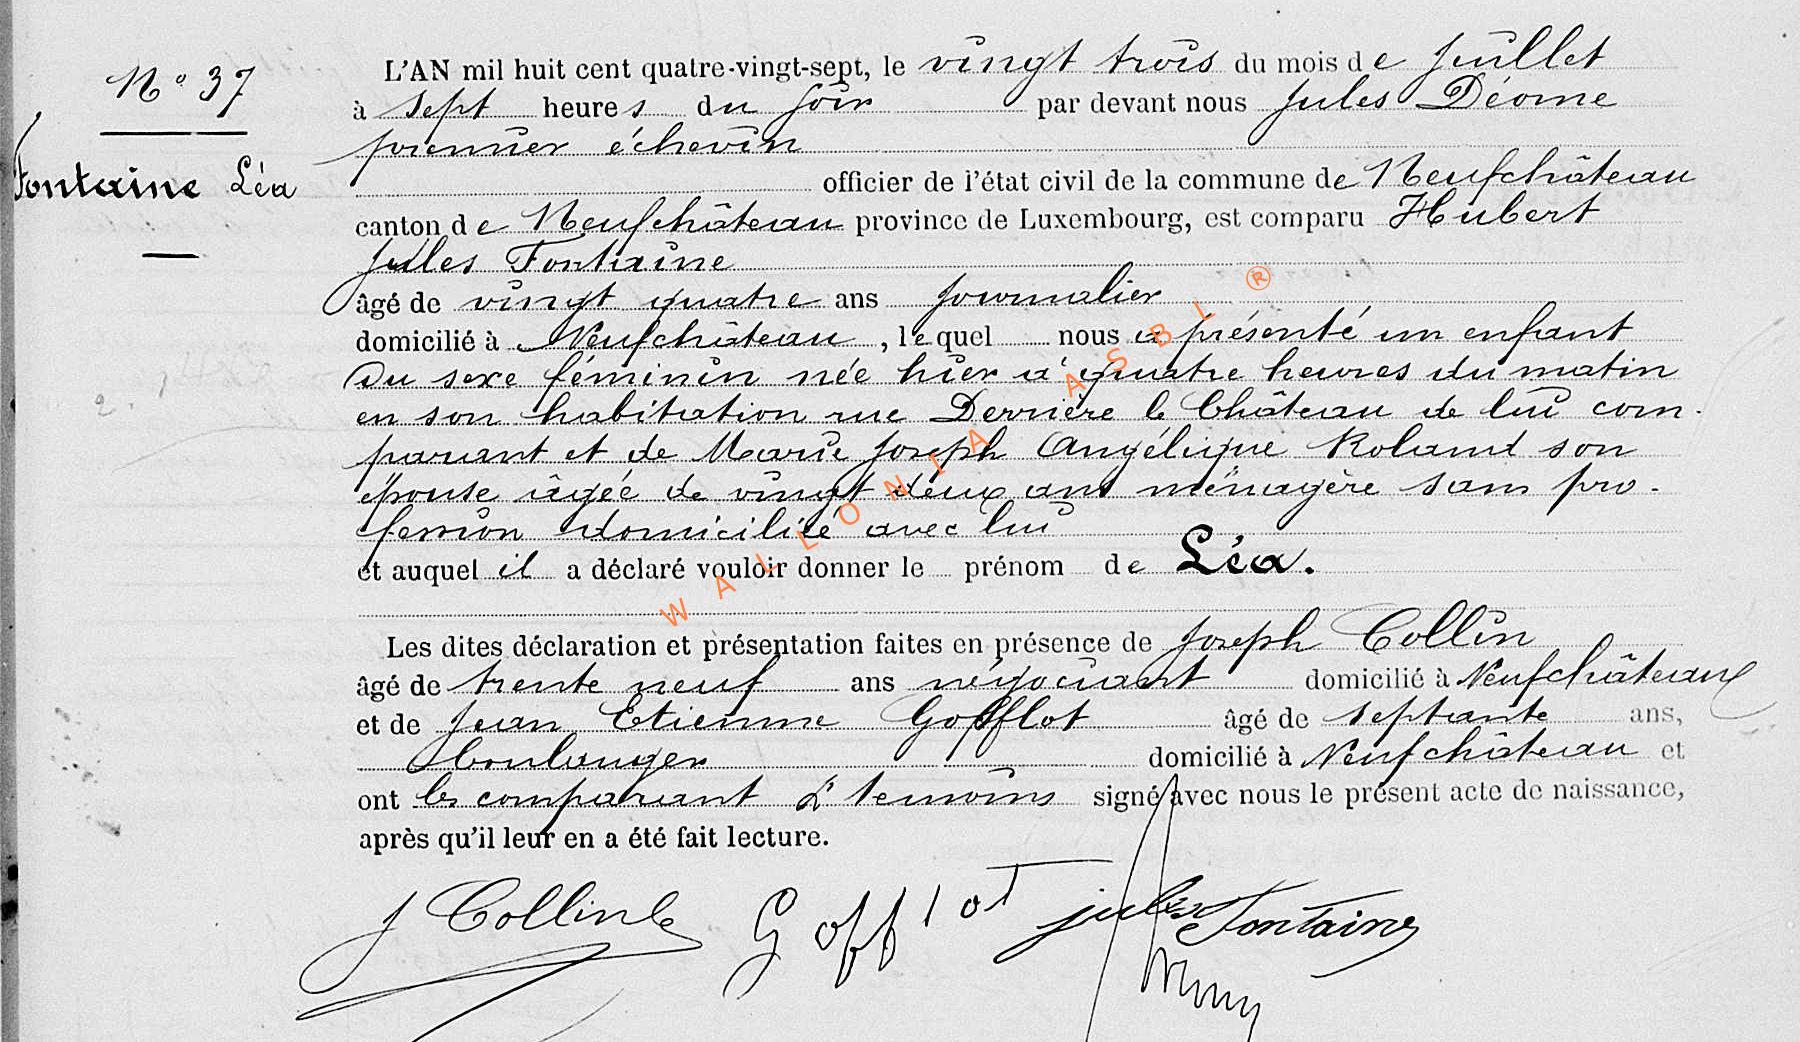 N° 37
Fontaine Léa
L'AN mil huit cent quatre-vingt-sept, le vingt trois du mois de Juillet
à sept heures du soir par devant nous Jules Déome
premier échevin
officier de l'état civil de la commune de Neufchâteau
canton de Neufchâteau province de Luxembourg, est comparu Hubert
Jules Fontaine
âgé de vingt quatre ans journalier
domicilié à Neufchâteau, lequel nous a présenté un enfant
du sexe féminin née hier à quatre heures du matin
en son habitation rue Derrière le Château de lui com-
parant et de Marie Joseph Angélique Roland son
épouse âgée de vingt deux ans ménagère sans pro-
fession domiciliée avec lui
et auquel il a déclaré vouloir donner le prénom de Léa.
Les dites déclaration et présentation faites en présence de Joseph Collin
âgé de trente neuf ans négociant domicilié à Neufchâteau
et de Jean Etienne Gofflot âgé de septante ans,
boulanger domicilié à Neufchâteau et
ont les comparant & temoins signé avec nous le présent acte de naissance,
après qu'il leur en a été fait lecture.
J Collin Gofflot jules Fontaine
WALLONIA ASBL ®